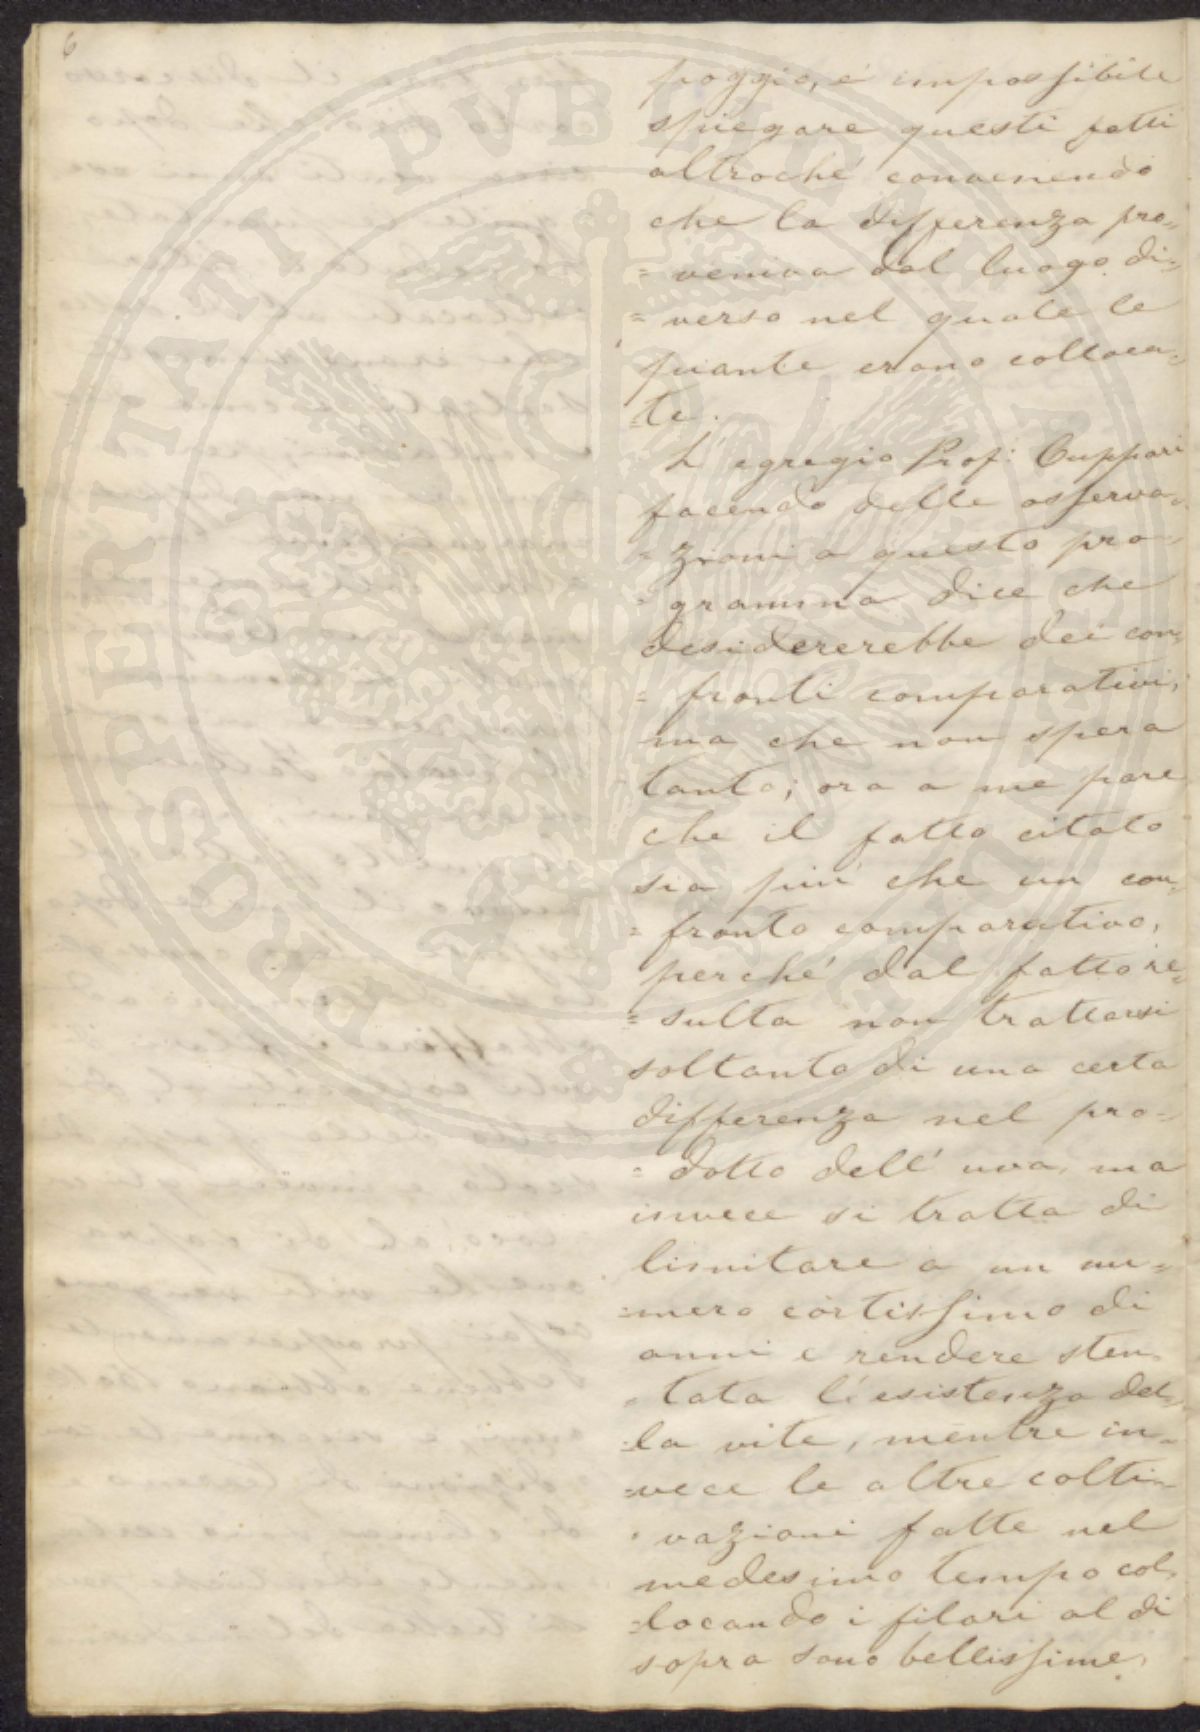 6
poggio, è impossibile
spiegare questi fatti
altroché convenendo
che la differenza pro=
= veniva dal luogo di=
= verso nel quale le
piante erano colloca=
=te.
L' egregio Prof: Cuppari
facendo delle osserva=
= zioni a questo pro=
= gramma dice che
desidererebbe dei con=
= fronti comparativi,
ma che non spera
tanto; ora a me pare
che il fatto citato
sia più che un con=
= fronto comparativo,
perché dal fatto re=
= sulta non trattarsi
soltanto di una certa
differenza nel pro=
= dotto dell' uva, ma
invece si tratta di
limitare a un nu=
=mero cortissimo di
anni e rendere sten=
= tata l'esistenza del=
=la vite, mentre in=
=vece le altre colti=
= vazioni fatte nel
medesimo tempo col=
=locando i filari al di
sopra sono bellissime.
PROSPERITATI PVBLICAE AVGENDAE